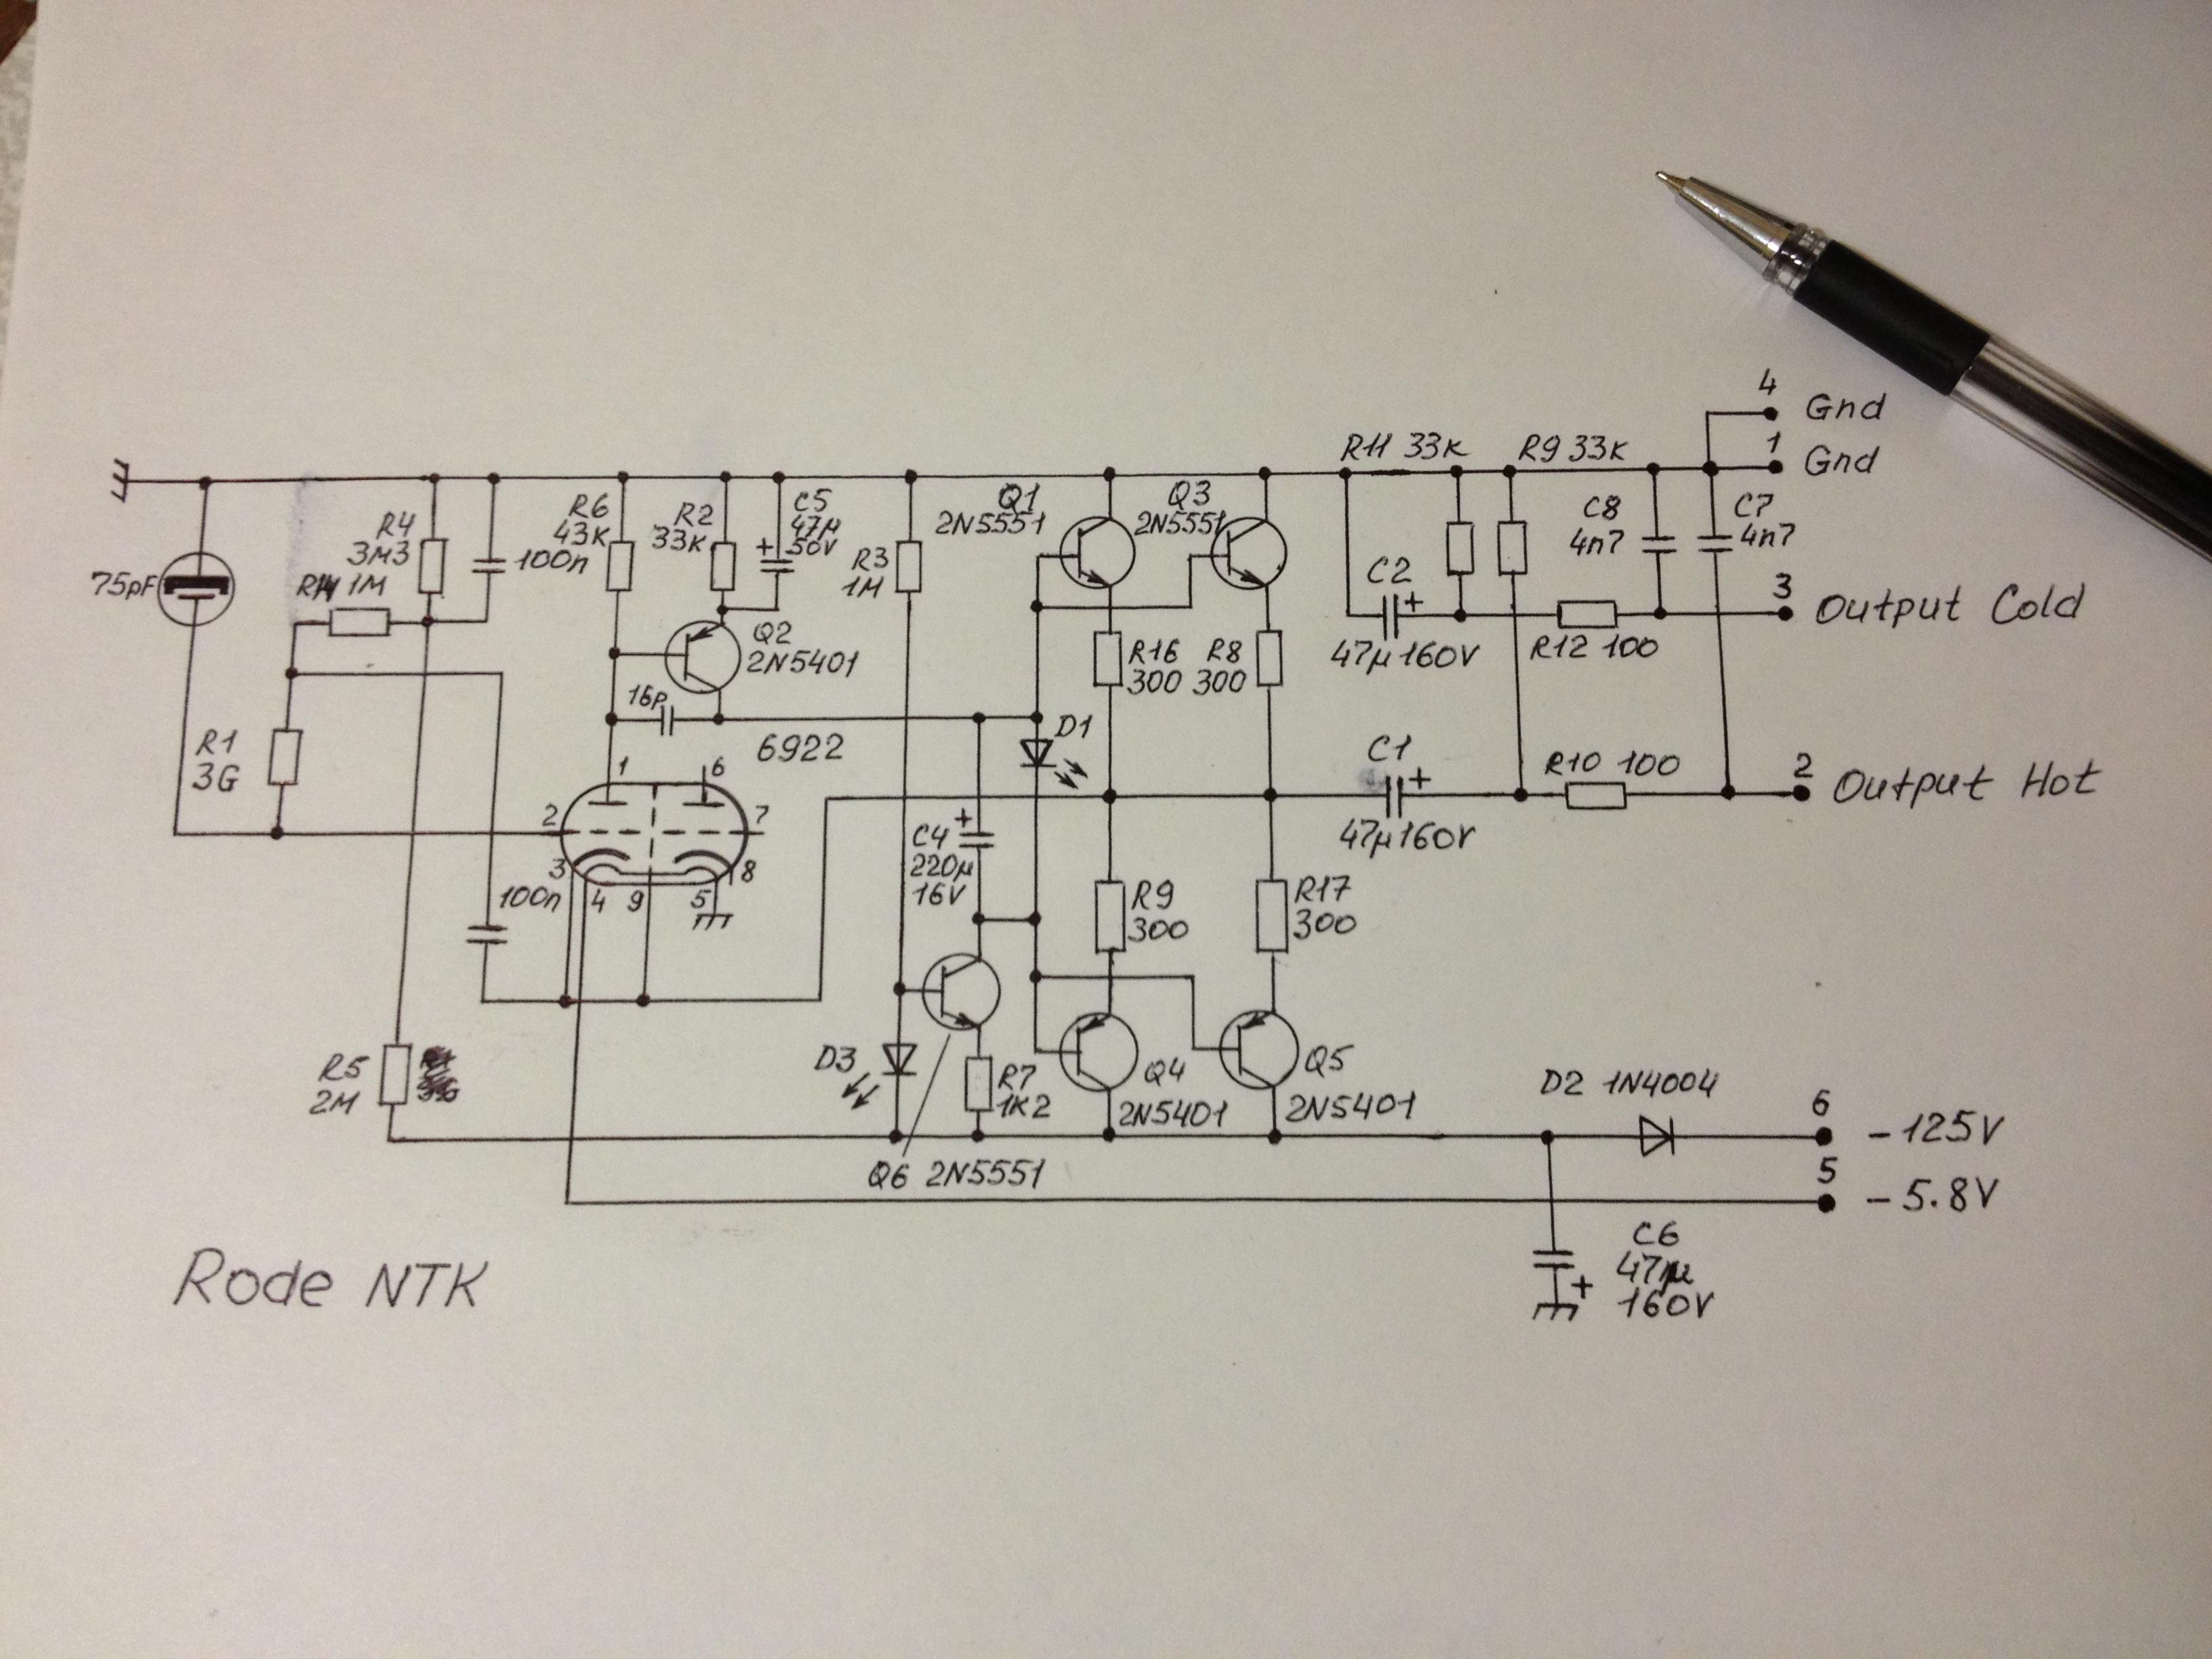 4 Gnd
1 Gnd
R11 33K
R9 33K
Q1
2N5551
Q3
2N5551
R4
3M3
100n
R6
43K
R2
33K
C5
47µ
50V
R3
1M
C8
4n7
C7
4n7
75pF
1M
C2
+
47µ 160V
R12 100
3 Output Cold
Q2
2N5401
R16
300
R8
300
16p
6922
D1
R1
3G
1
6
2
7
3
8
4
9
5
C1
+
47µ 160V
R10 100
2 Output Hot
+
C4
220µ
16V
100n
R9
300
R17
300
R5
2M
D3
R7
1K2
Q4
2N5401
Q5
2N5401
Q6 2N5551
D2 1N4004
6 -125V
5 -5.8V
C6
47µ
160V
+
Rode NTK